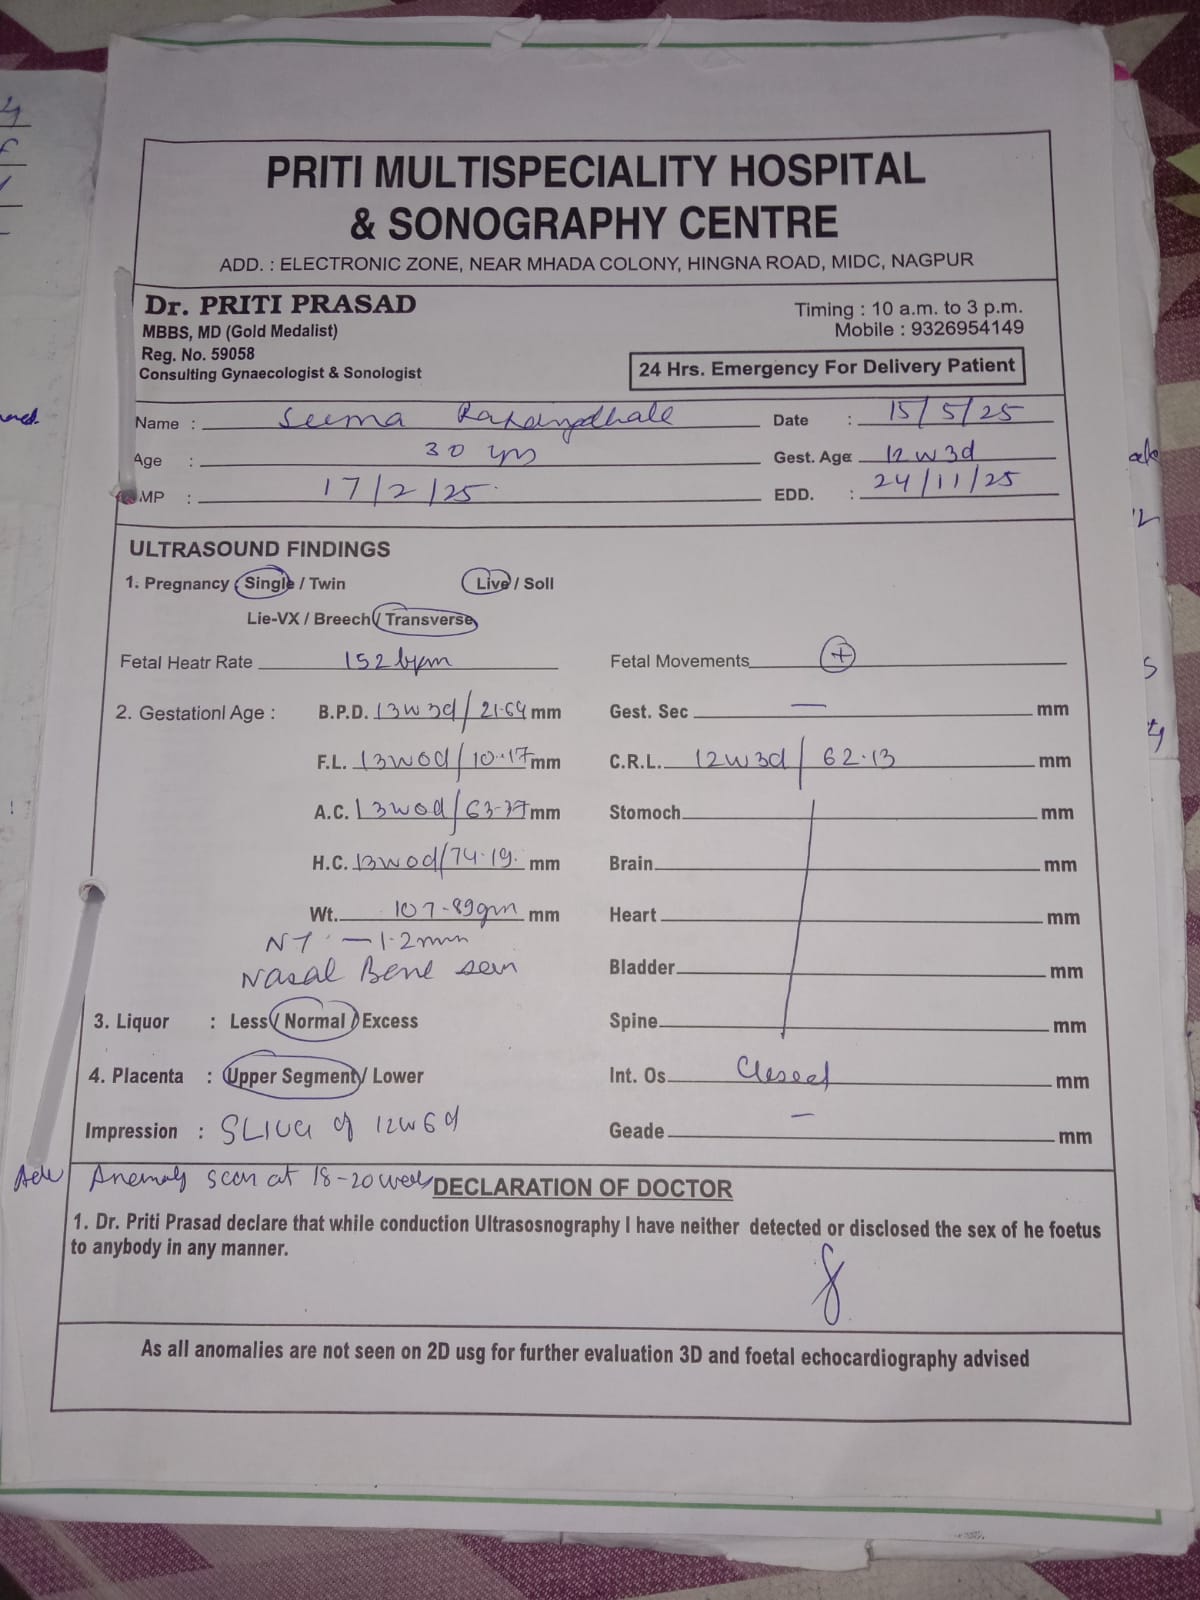 PRITI MULTISPECIALITY HOSPITAL
& SONOGRAPHY CENTRE
ADD. : ELECTRONIC ZONE, NEAR MHADA COLONY, HINGNA ROAD, MIDC, NAGPUR
Dr. PRITI PRASAD
MBBS, MD (Gold Medalist)
Reg. No. 59058
Consulting Gynaecologist & Sonologist
Timing : 10 a.m. to 3 p.m.
Mobile : 9326954149
24 Hrs. Emergency For Delivery Patient
Name : Seema
Date : 15/5/25
Age : 30 yrs
Gest. Age 12w3d
MP : 17/2/25
EDD. : 24/11/25
ULTRASOUND FINDINGS
1. Pregnancy Single / Twin Live / Soll
Lie-VX / Breech / Transverse
Fetal Heatr Rate 152 bpm Fetal Movements +
2. Gestationl Age : B.P.D. 13w3d/21.64 mm Gest. Sec — mm
F.L. 13w0d/10.17 mm C.R.L. 12w3d/62.13 mm
A.C. 13w0d/63.37 mm Stomoch mm
H.C. 13w0d/74.19 mm Brain mm
Wt. 107.89gm mm Heart mm
NT — 1.2mm
Nasal Bone seen Bladder mm
3. Liquor : Less / Normal / Excess Spine mm
4. Placenta : Upper Segment / Lower Int. Os. Closed mm
Impression : SLIUG of 12w6d Geade — mm
Adv Anomaly scan at 18-20 weeks
DECLARATION OF DOCTOR
1. Dr. Priti Prasad declare that while conduction Ultrasosnography I have neither detected or disclosed the sex of he foetus
to anybody in any manner.
As all anomalies are not seen on 2D usg for further evaluation 3D and foetal echocardiography advised